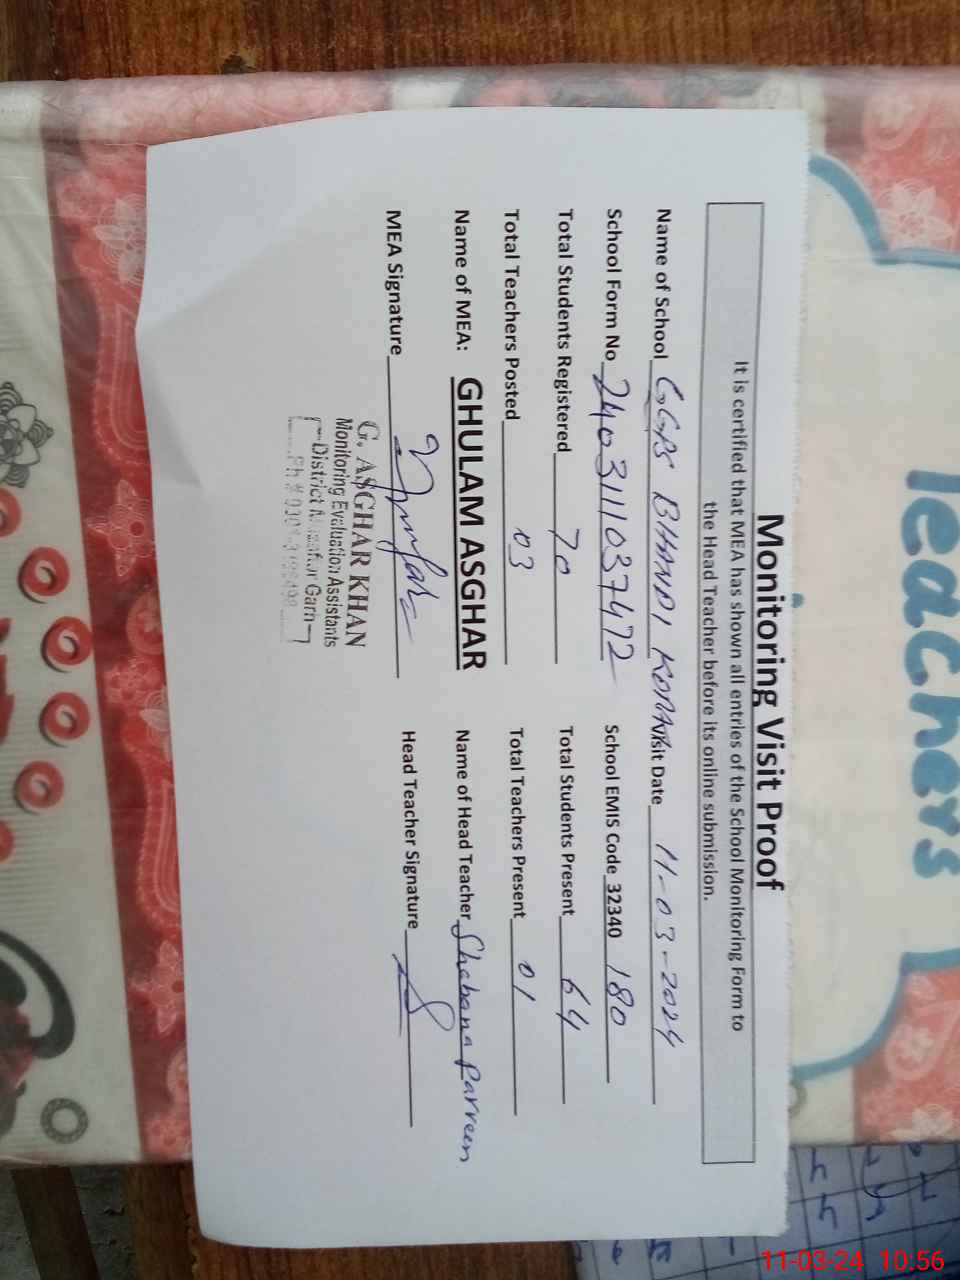 Teachers
Monitoring Visit Proof
It is certified that MEA has shown all entries of the School Monitoring Form to
the Head Teacher before its online submission.
Name of School GGPS BHINDI KORAI Visit Date 11-03-2024
School Form No 2403111037472 School EMIS Code 32340 180
Total Students Registered 70 Total Students Present 64
Total Teachers Posted 03 Total Teachers Present 01
Name of MEA: GHULAM ASGHAR Name of Head Teacher Shabana Parveen
MEA Signature Head Teacher Signature
G. ASGHAR KHAN
Monitoring Evaluation Assistants
District Muzaffar Garh
Ph #
11-03-24 10:56